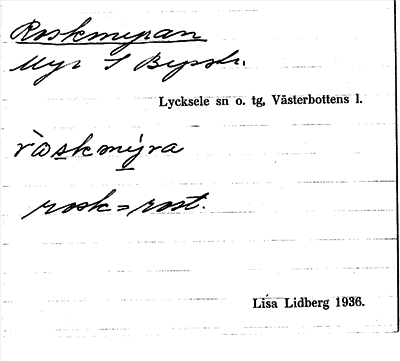 Roskmyran
Myr S Bysstr.
Lycksele sn o. tg, Västerbottens l.
ràskmýra
rosk = rost.
Lisa Lidberg 1936.